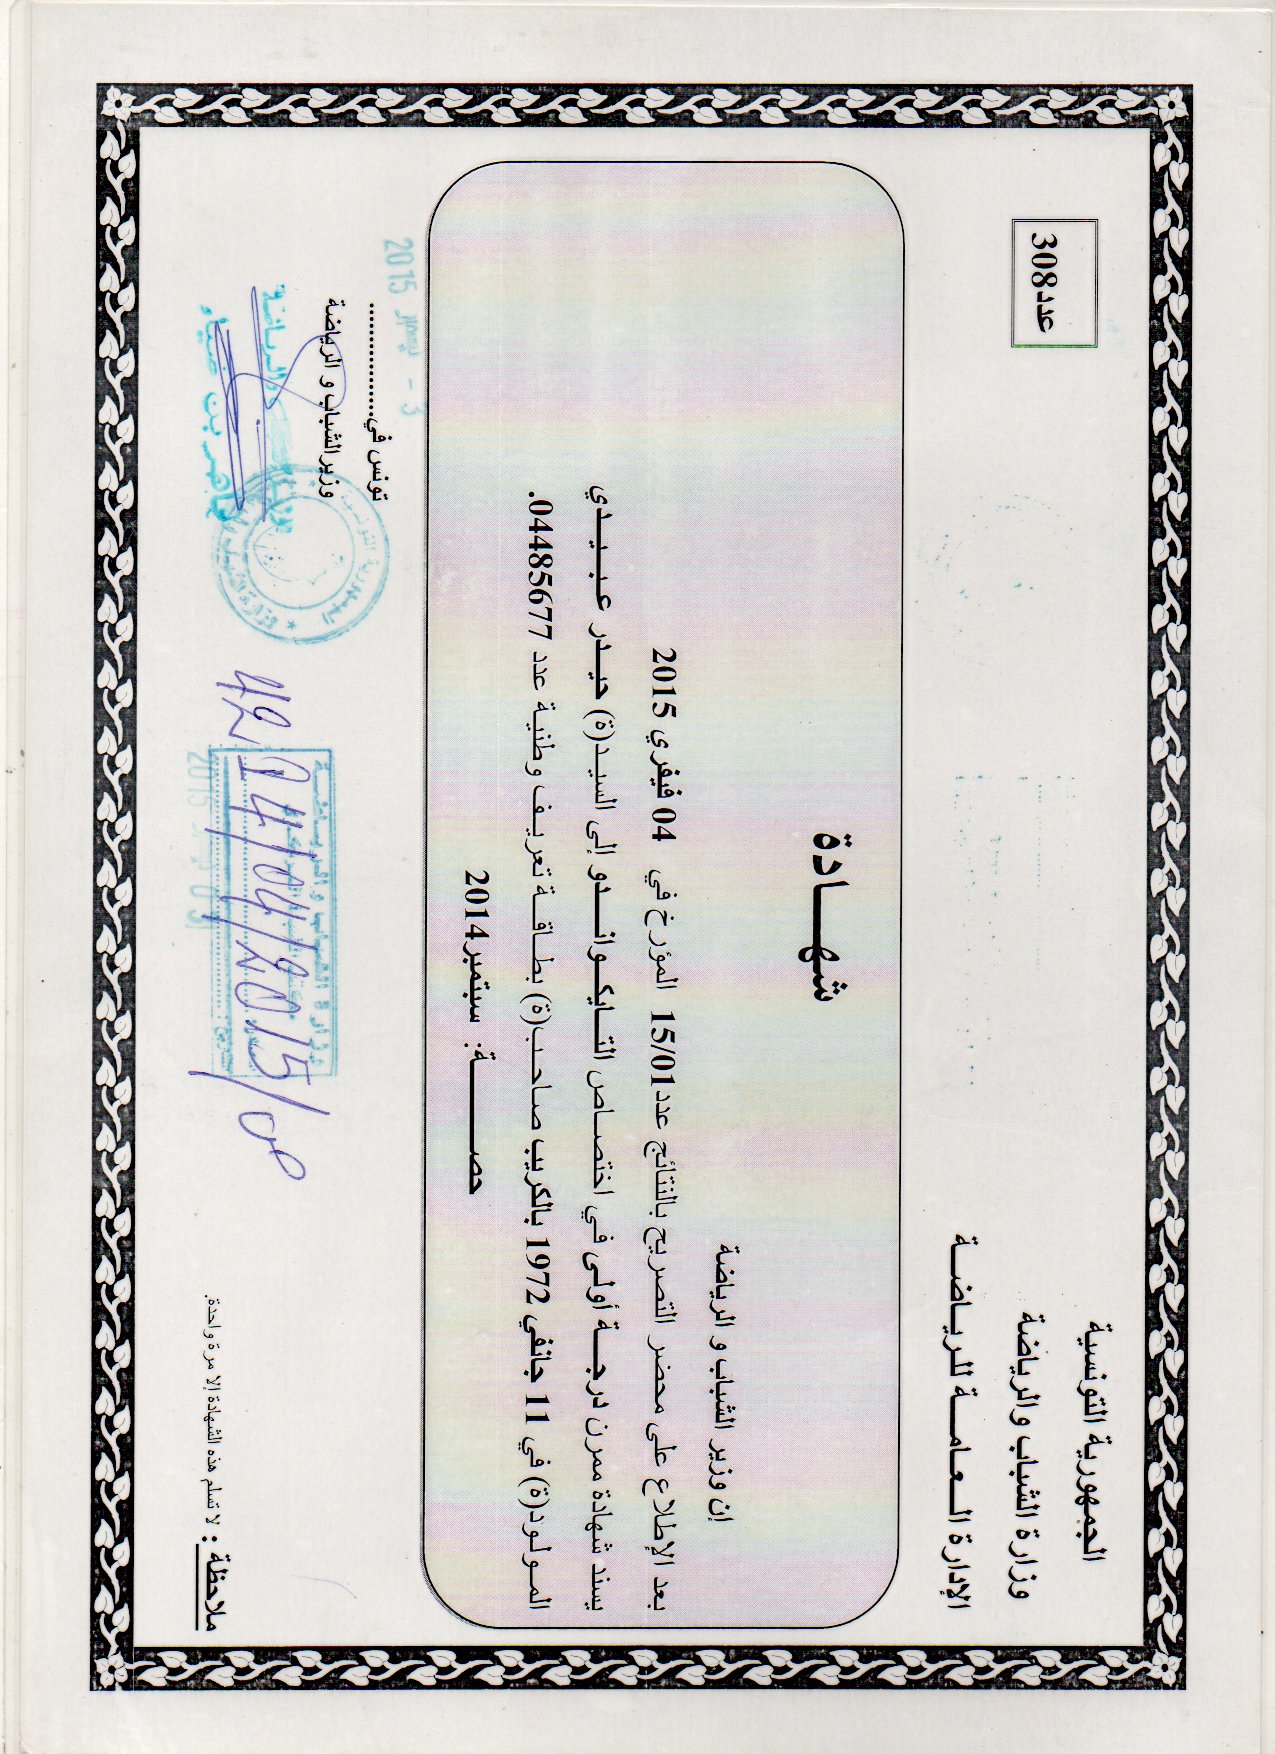 الجمهورية التونسية
وزارة الشباب والرياضة
الإدارة العامة للرياضة
عدد308
شهادة
إن وزير الشباب و الرياضة
بعد الإطلاع على محضر التصريح بالنتائج عدد15/01 المؤرخ في 04 فيفري 2015
يسند شهادة ممرن درجة أولى في اختصاص التايكواندو إلى السيد(ة) حيدر عبيدي
المولود(ة) في 11 جانفي 1972 بالكريب صاحب(ة) بطاقة تعريف وطنية عدد 04485677.
حصة: سبتمبر2014
تونس في..................
3 - 2015
وزير الشباب و الرياضة
ماهر بن ضياء
وزارة الشباب و الرياضة
4214/04/2015/ص
ملاحظة : لا تسلم هذه الشهادة إلا مرة واحدة.